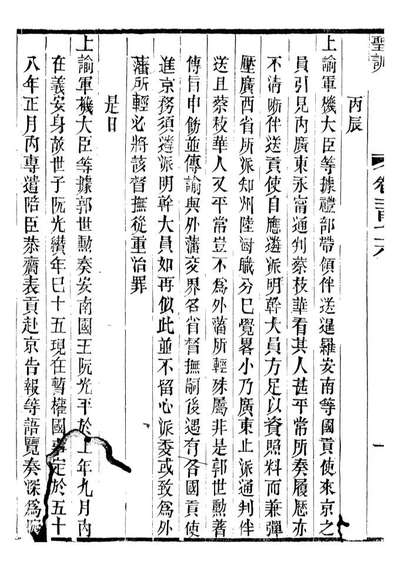 聖訓
卷三百六
一
丙辰
上諭軍機大臣等據禮部帶領伴送暹羅安南等國貢使來京之
員引見內廣東永甯通判蔡枝華看其人甚平常所奏履歷亦
不清晰伴送貢使自應遴派明幹大員方足以資照料而兼彈
壓廣西省所派知州陸 職分已覺畧小乃廣東止派通判伴
送且蔡枝華人又平常豈不爲外藩所輕殊屬非是郭世勳著
傳旨申飭並傳諭與外藩交界各省督撫嗣後遇有各國貢使
進京務須遴派明幹大員如再似此並不留心派委或致爲外
藩所輕必將該督撫從重治罪
是日
上諭軍機大臣等據郭世勳奏安南國王阮光平於上年九月內
在義安身故世子阮光纘年已十五現在暫權國事定於五十
八年正月內專遣陪臣恭齎表貢赴京告報等語覽奏深爲